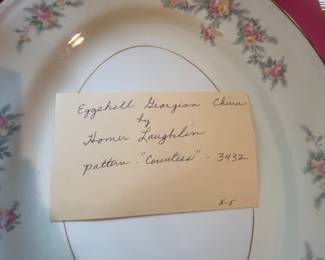 Eggshell Georgian China
by
Homer Laughlin
pattern - "Countess" - 3432
N-5